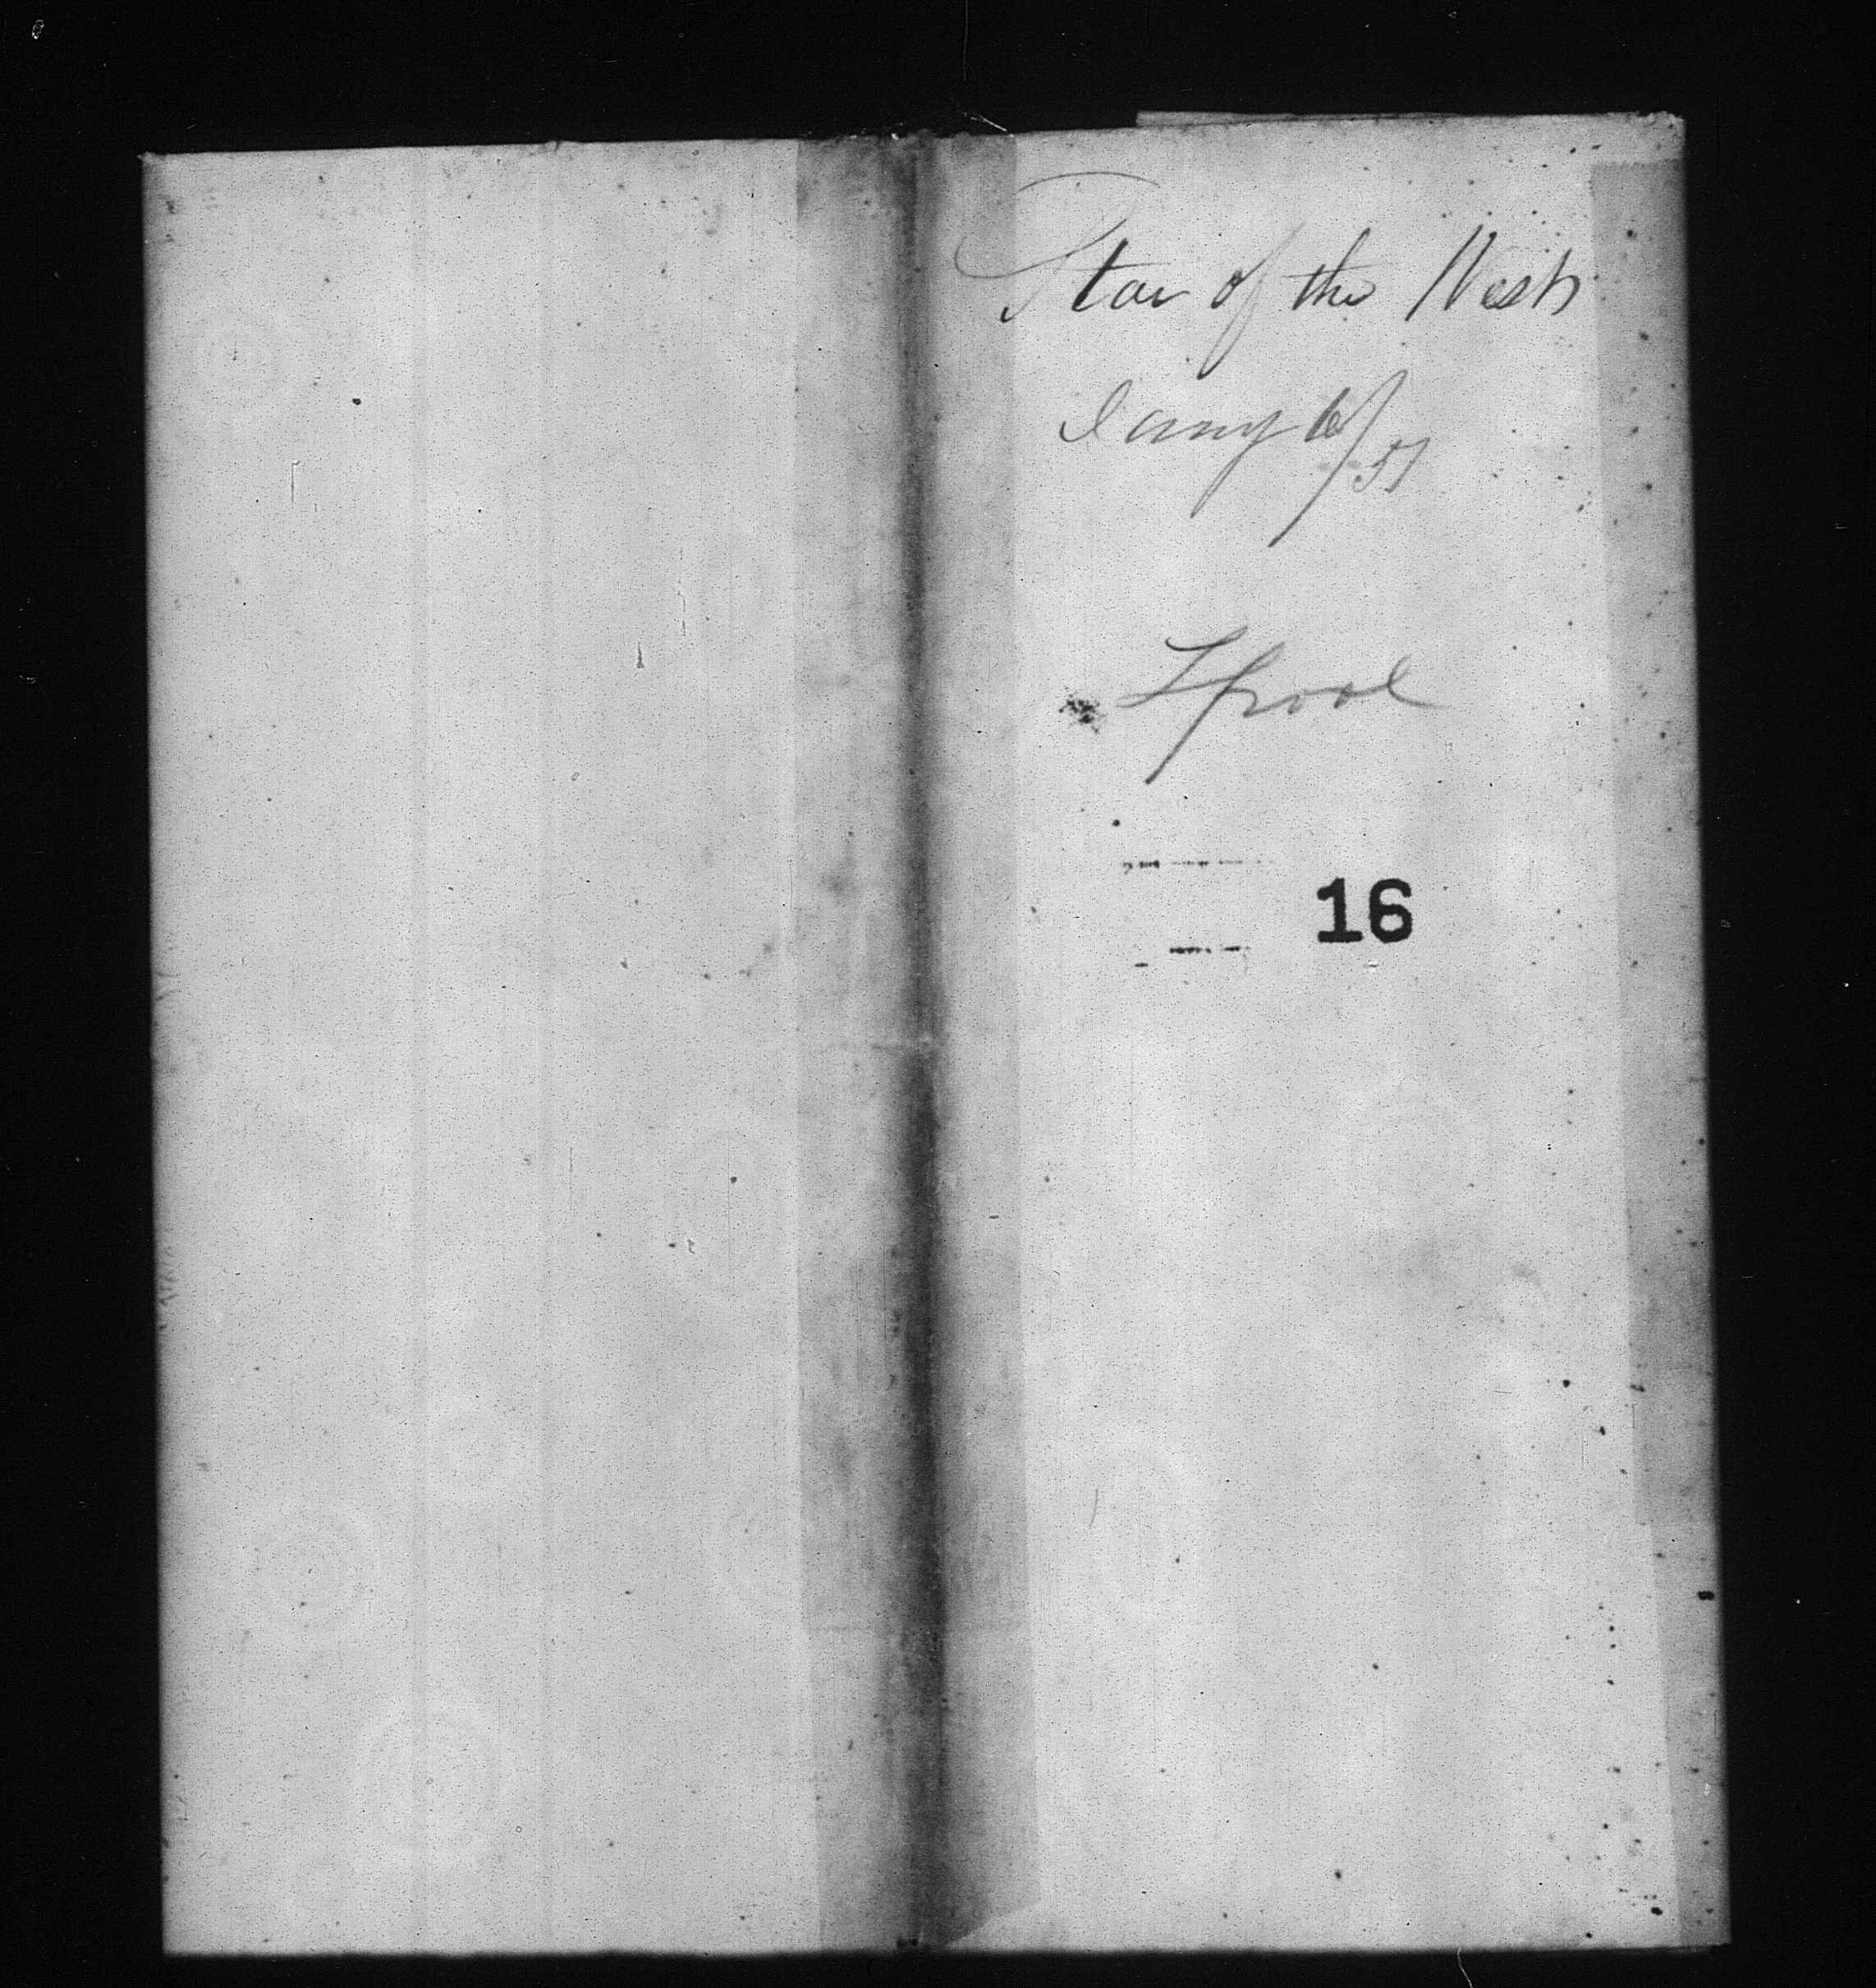 Star of the West
Jany 6/51
Lpool
16